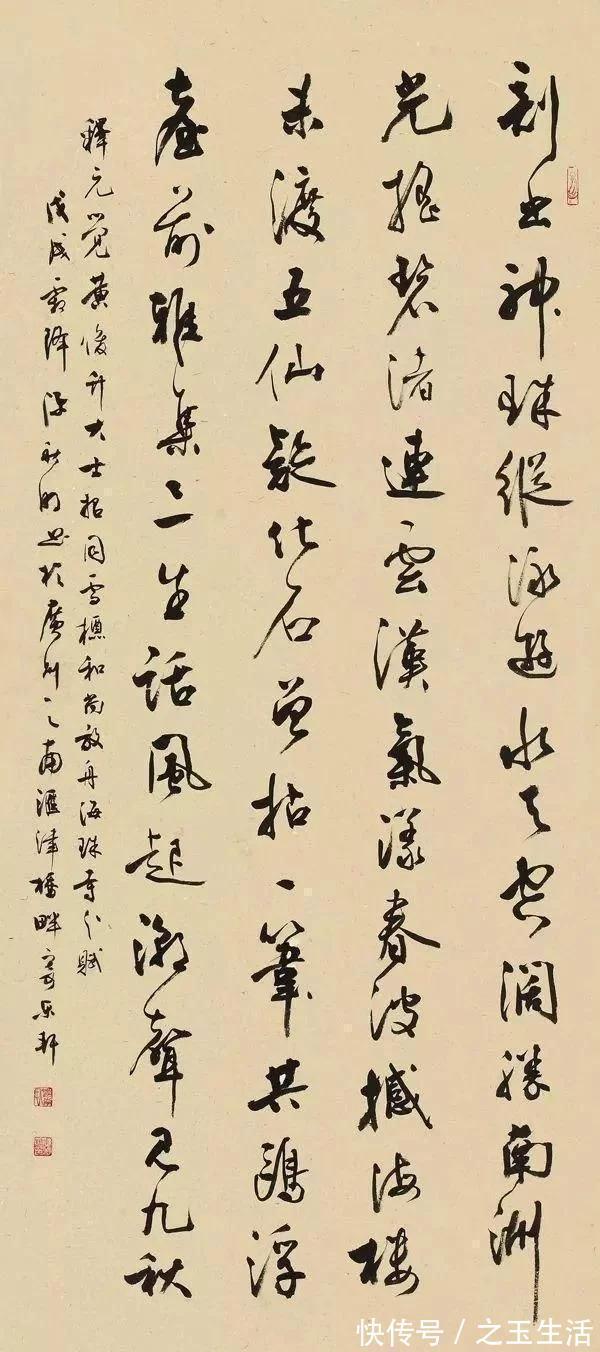 出神珠縱泳遊水天空闊勝南洲
光搖碧渚連雲漢氣漾春波撼海樓
未渡五仙疑化石曾拈一葦共鷗浮
臺前雅集三生話風起潮聲九秋
釋元覺黃俊升大士招同雪和尚放舟海珠寺分賦
戊戌霜降陳秋明書於廣州之南滙津橋畔寄樂軒
快传号 / 之玉生活